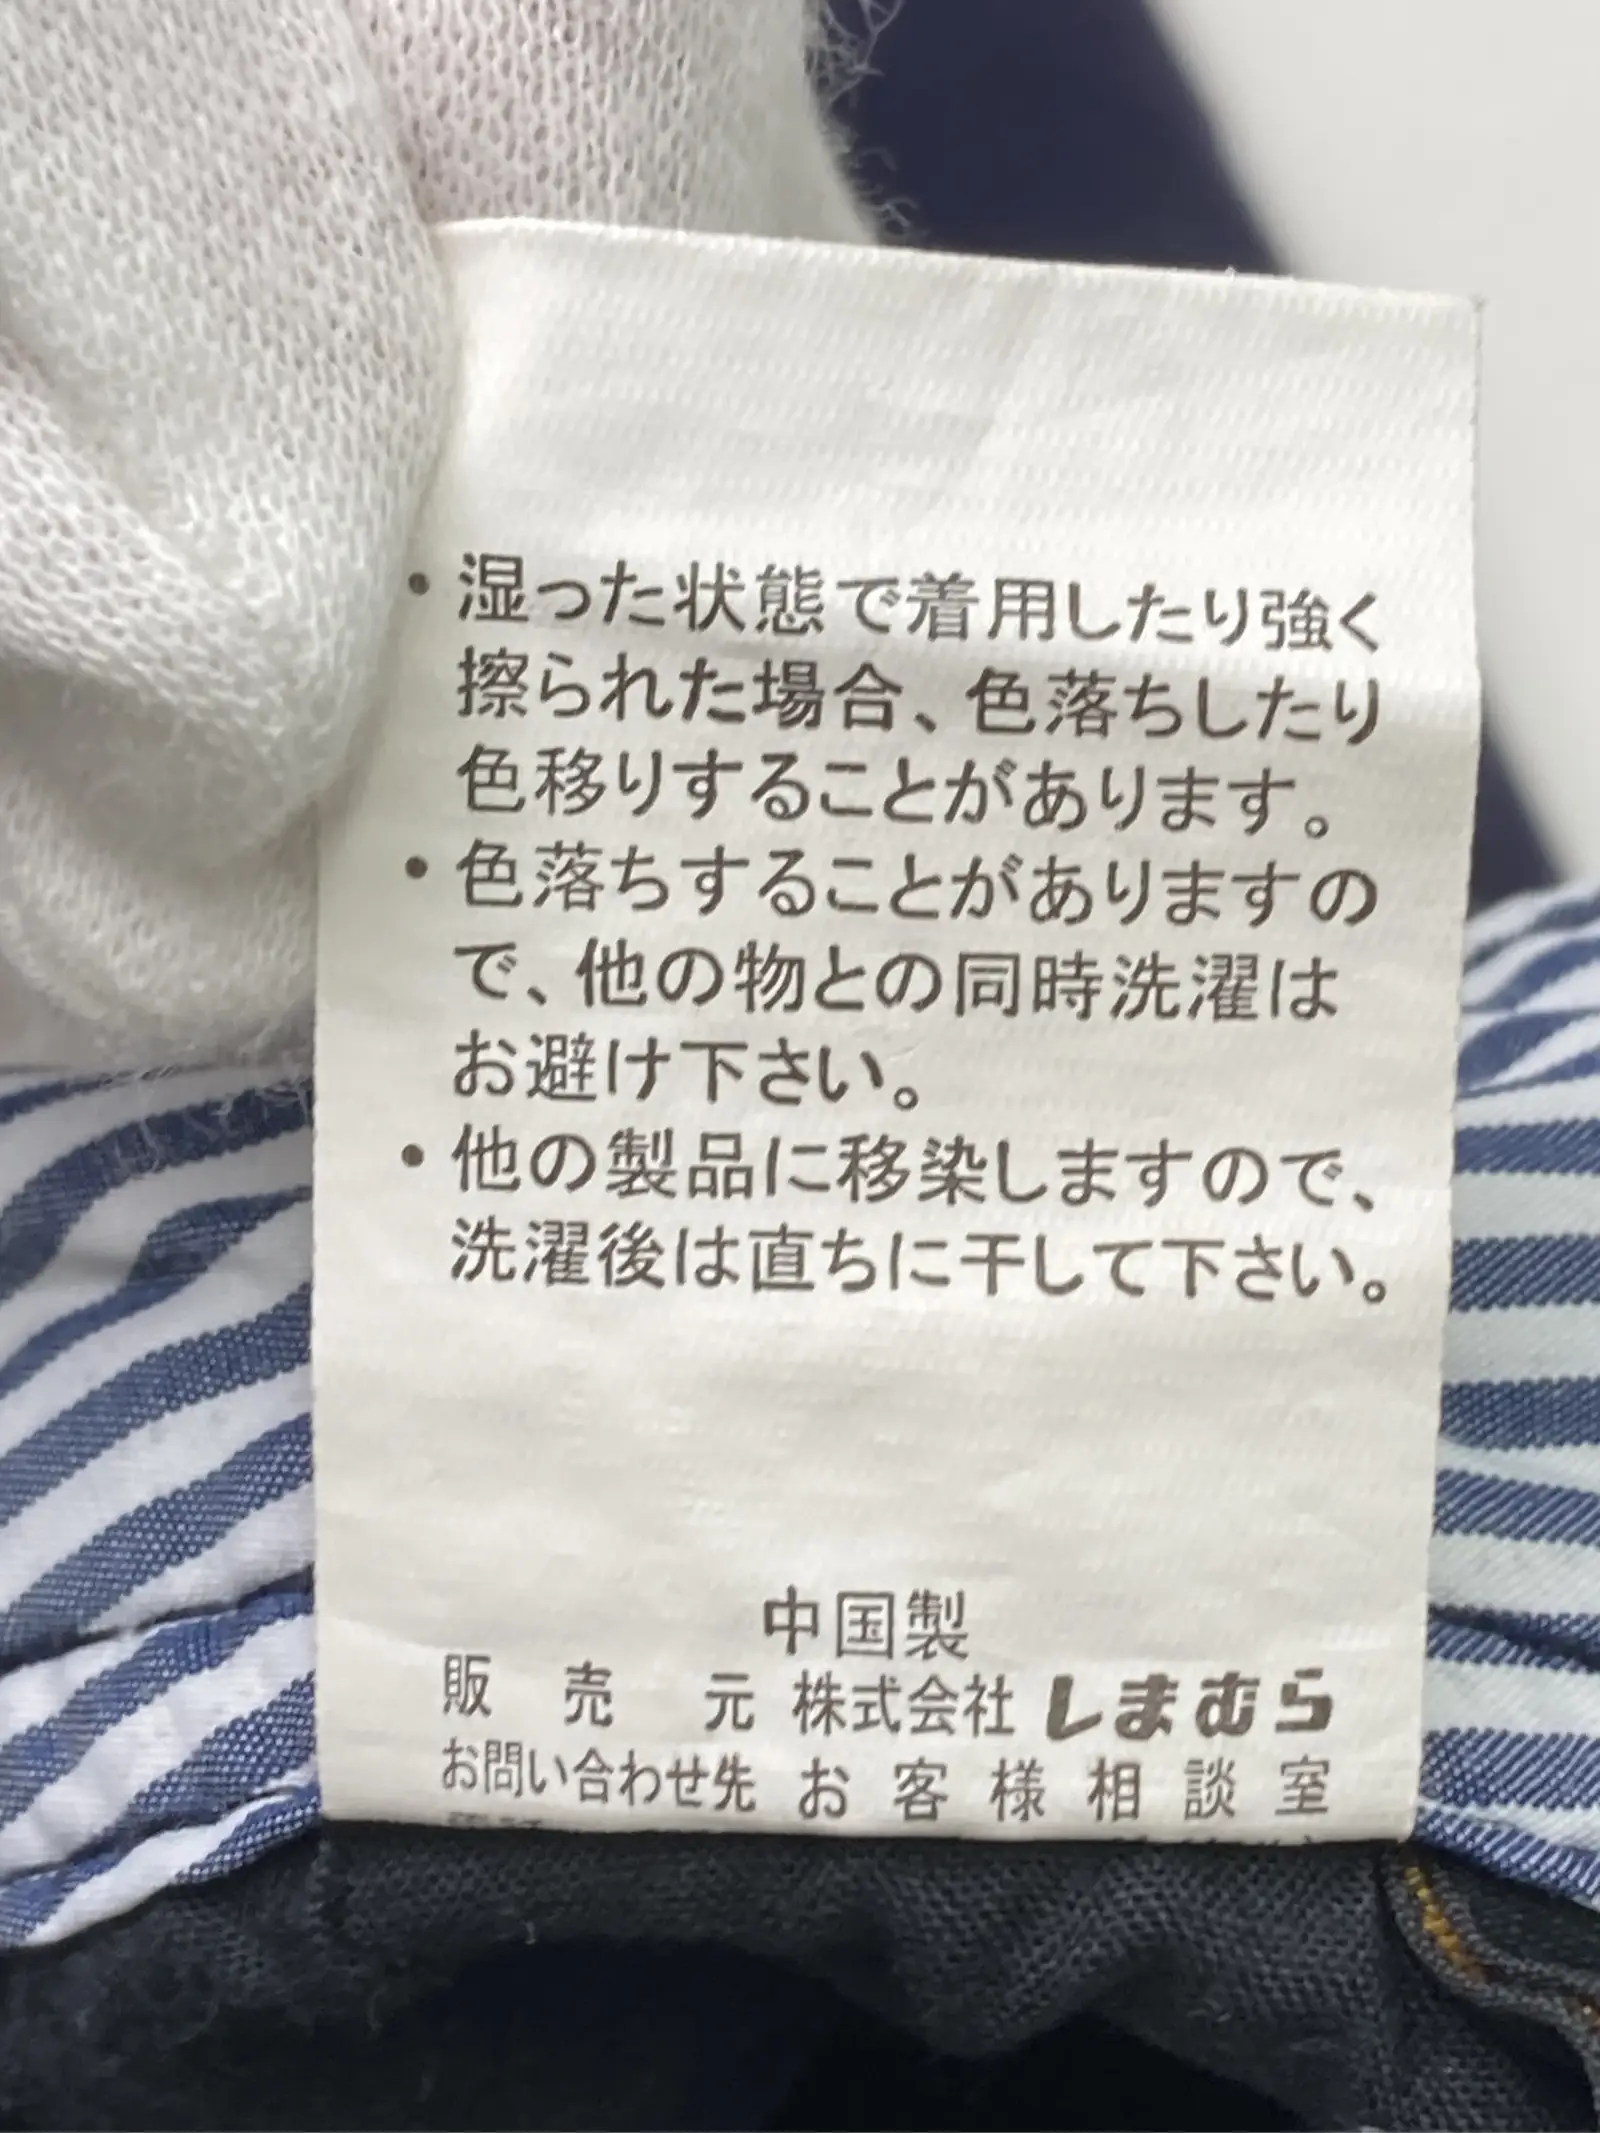 ・湿った状態で着用したり強く
擦られた場合、色落ちしたり
色移りすることがあります。
・色落ちすることがありますの
で、他の物との同時洗濯は
お避け下さい。
・他の製品に移染しますので、
洗濯後は直ちに干して下さい。
中国製
販売元 株式会社しまむら
お問い合わせ先 お客様相談室